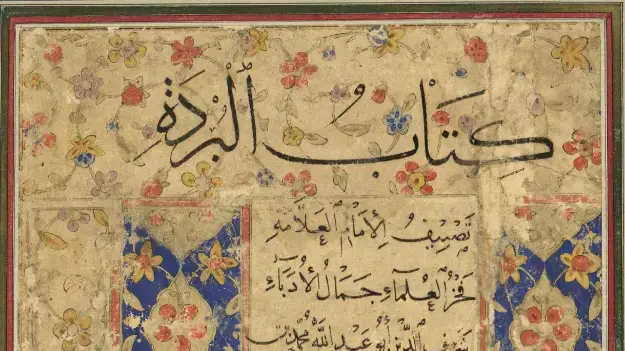 كِتَابُ الْبُرْدَةِ
تَصْنِيفُ الْإِمَامِ الْعَلَّامَةِ
فَخْرُ الْعُلَمَاءِ جَمَالُ الْأُدَبَاءِ
شرف الدين أبو عبد الله محمد بن